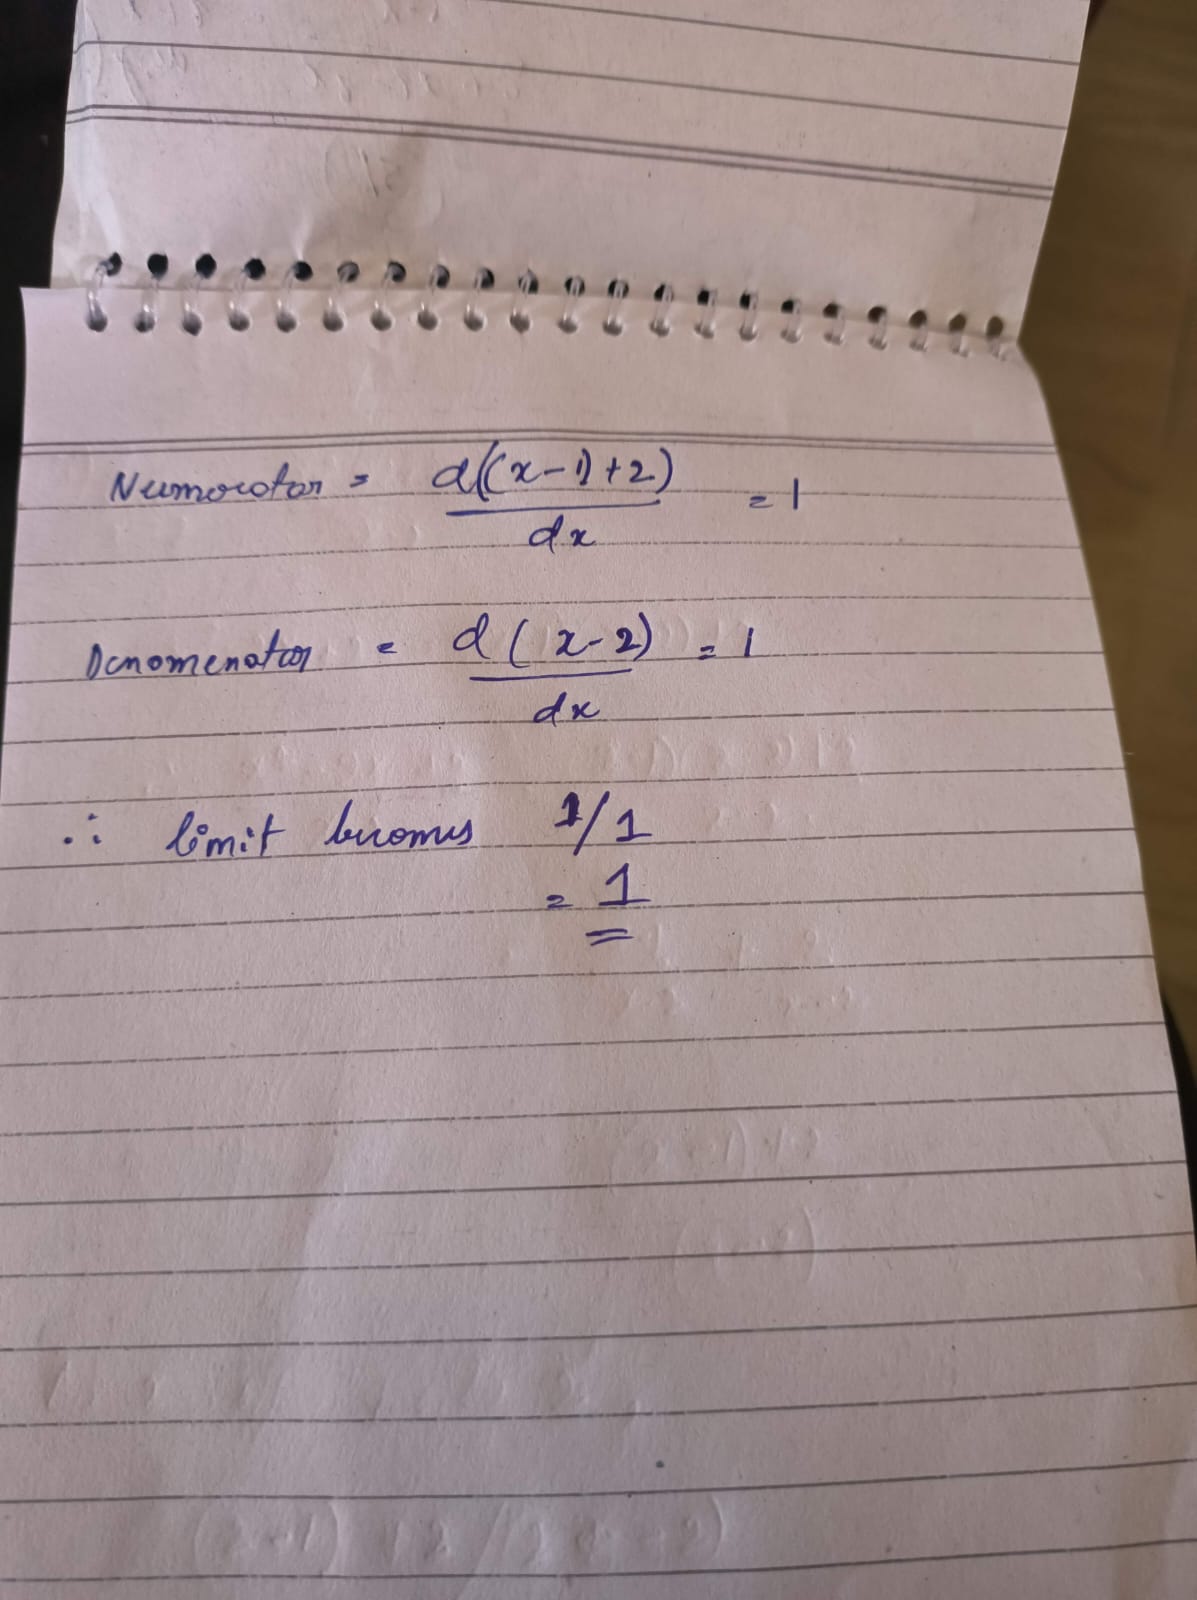 Numorotor = d((x-1)+2) = 1
dx
Dcnomenotor = d(x-2) = 1
dx
∴ limit becomes 1/1
= 1